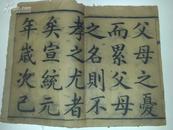 父母之憂
而累父母
之名則不
孝之尤者
矣宣統元
年歲次己